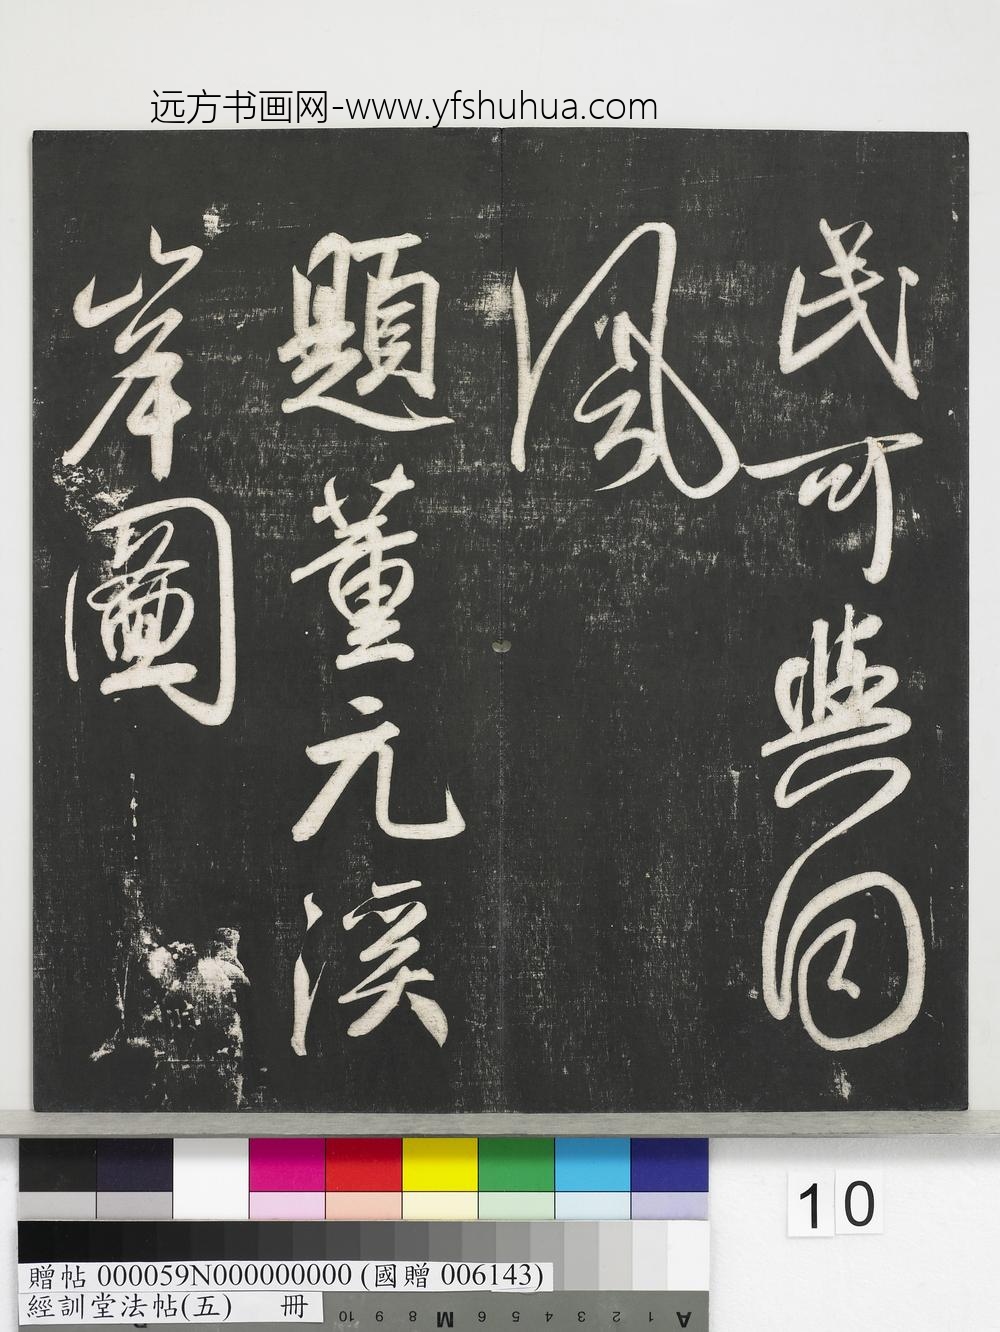 远方书画网-www.yfshuhua.com
民可與同
風
題董元溪
岸圖
10
贈帖 000059N000000000 (國贈 006143)
經訓堂法帖(五) 冊
10 9 8 M 6 5 4 3 2 1 A